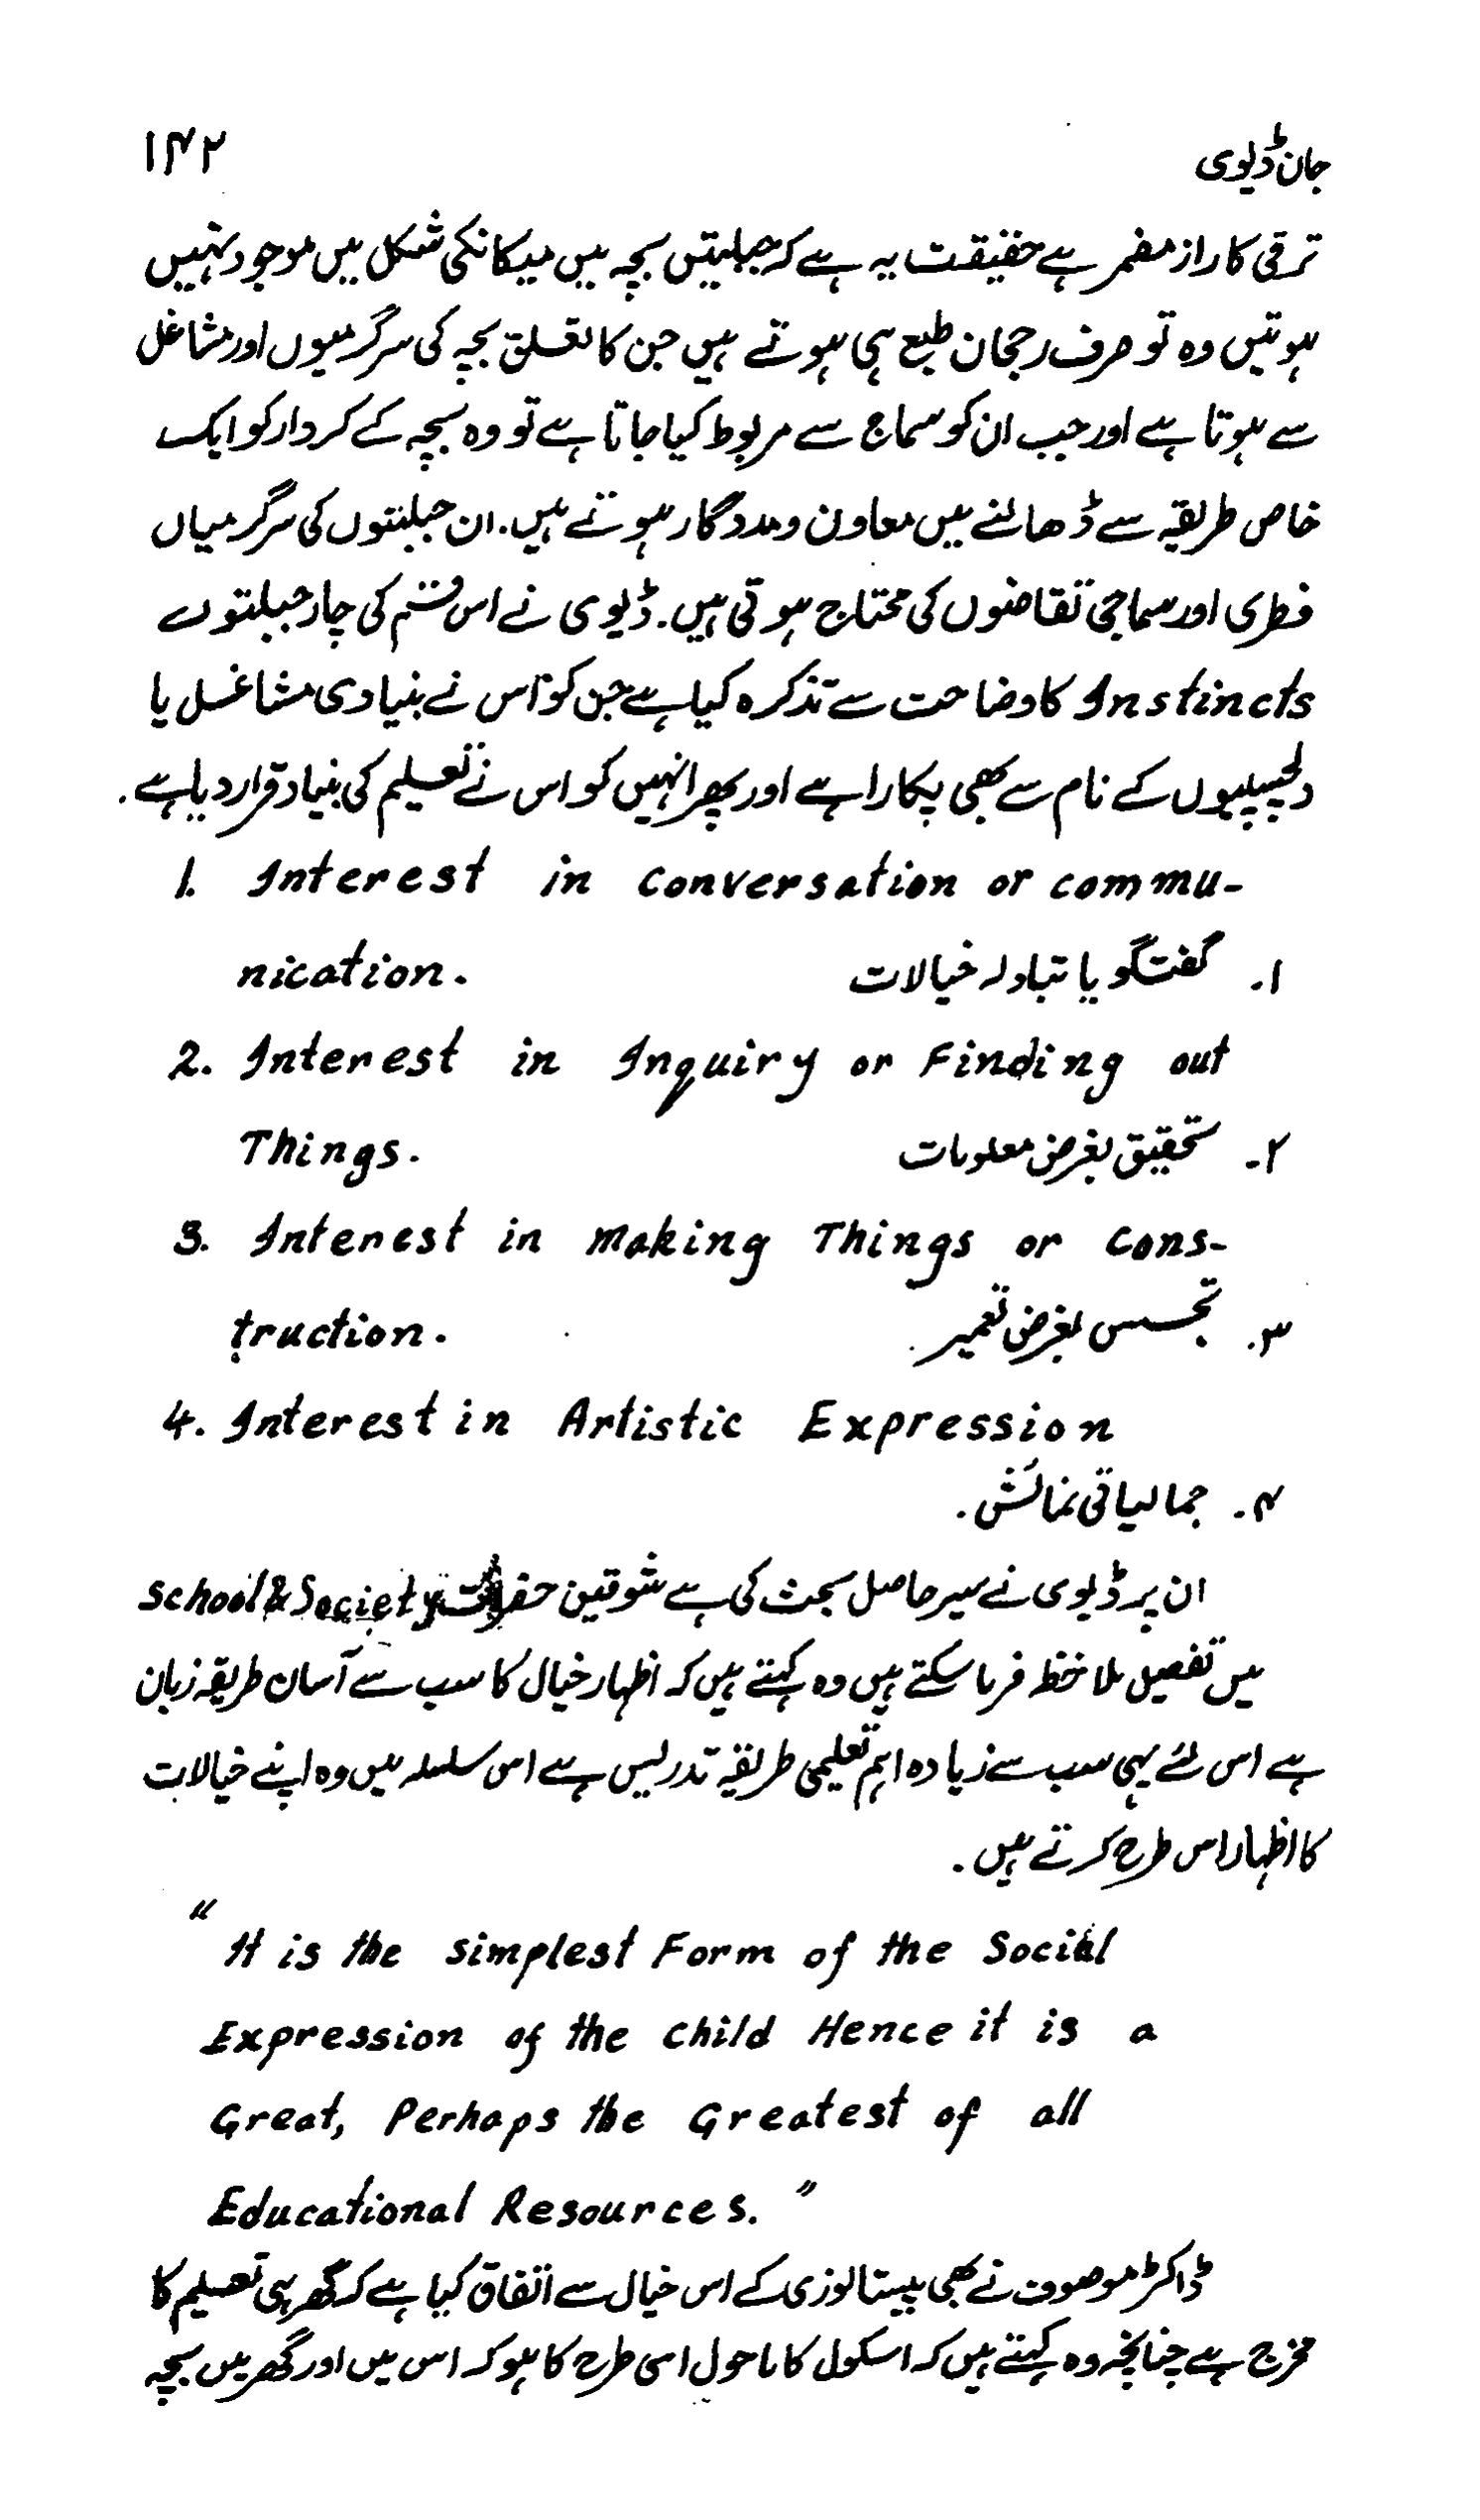 جان ڈیوی ۱۴۲
ترقی کا راز مضمر ہے حقیقت یہ ہے کہ جبلیتں بچہ میں میکانکی شکل میں موجود نہیں
ہوتیں وہ تو صرف رجحان طبع ہی ہوتے ہیں جن کا تعلق بچہ کی سرگرمیوں اور مشاغل
سے ہوتا ہے اور جب ان کو سماج سے مربوط کیا جاتا ہے تو وہ بچہ کے کردار کو ایک
خاص طریقہ سے ڈھالنے میں معاون و مددگار ہوتے ہیں۔ ان جبلتوں کی سرگرمیاں
فطری اور سماجی تقاضوں کی محتاج ہوتی ہیں۔ ڈیوی نے اس قسم کی چار جبلتوں
Instincts کا وضاحت سے تذکرہ کیا ہے جن کو اس نے بنیادی مشاغل یا
دلچسپیوں کے نام سے بھی پکارا ہے اور پھر انہیں کو اس نے تعلیم کی بنیاد قرار دیا ہے۔
1. Interest in conversation or commu-
nication. ۱۔ گفتگو یا تبادلہ خیالات
2. Interest in Inquiry or Finding out
Things. ۲۔ تحقیق بغرض معلومات
3. Interest in making Things or cons-
truction. ۳۔ تجسس بغرض تعمیر
4. Interest in Artistic Expression
۴۔ جمالیاتی نمائش۔
ان پر ڈیوی نے سیر حاصل بحث کی ہے شوقین حضرات School & Society
میں تفصیل ملاحظہ فرما سکتے ہیں وہ کہتے ہیں کہ اظہار خیال کا سب سے آسان طریقہ زبان
ہے اس لئے یہی سب سے زیادہ اہم تعلیمی طریقہ تدریس ہے اس سلسلہ میں وہ اپنے خیالات
کا اظہار اس طرح کرتے ہیں۔
"It is the simplest Form of the Social
Expression of the child Hence it is a
Great, Perhaps the Greatest of all
Educational Resources."
ڈاکٹر موصوف نے بھی پیستالوزی کے اس خیال سے اتفاق کیا ہے کہ گھر ہی تعلیم کا
مخرج ہے چنانچہ وہ کہتے ہیں کہ اسکول کا ماحول اسی طرح کا ہو کہ اس میں اور گھر میں بچہ